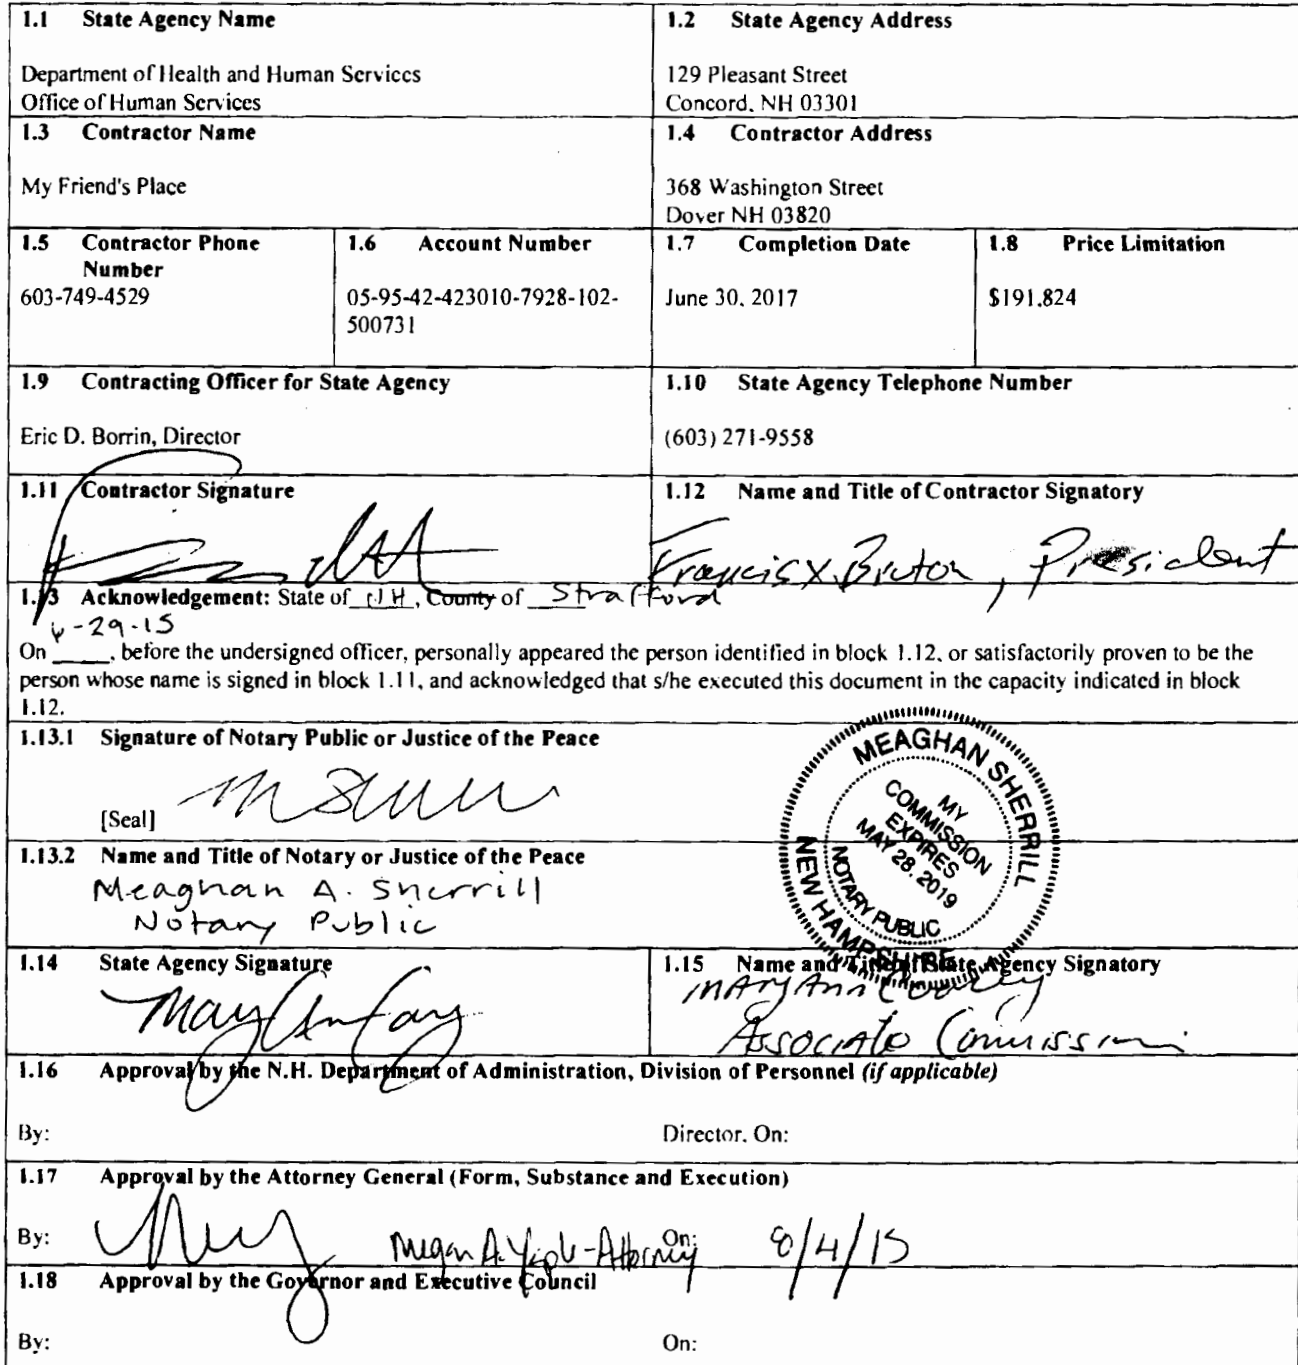 1.1 State Agency Name
1.2 State Agency Address
Department of Health and Human Services
Office of Human Services
129 Pleasant Street
Concord, NH 03301
1.3 Contractor Name
1.4 Contractor Address
My Friend's Place
368 Washington Street
Dover NH 03820
1.5 Contractor Phone
Number
603-749-4529
1.6 Account Number
05-95-42-423010-7928-102-
500731
1.7 Completion Date
June 30, 2017
1.8 Price Limitation
$191,824
1.9 Contracting Officer for State Agency
1.10 State Agency Telephone Number
Eric D. Borrin, Director
(603) 271-9558
1.11 Contractor Signature
1.12 Name and Title of Contractor Signatory
Francis X. Bruton, President
1.13 Acknowledgement: State of NH, County of Strafford
6-29-15
On ____, before the undersigned officer, personally appeared the person identified in block 1.12, or satisfactorily proven to be the
person whose name is signed in block 1.11, and acknowledged that s/he executed this document in the capacity indicated in block
1.12.
1.13.1 Signature of Notary Public or Justice of the Peace
[Seal]
MEAGHAN SHERRILL
MY
COMMISSION
EXPIRES
MAY 28, 2019
NOTARY PUBLIC
NEW HAMPSHIRE
1.13.2 Name and Title of Notary or Justice of the Peace
Meaghan A. Sherrill
Notary Public
1.14 State Agency Signature
1.15 Name and Title of State Agency Signatory
Mary Ann Cooney
Associate Commissioner
1.16 Approval by the N.H. Department of Administration, Division of Personnel (if applicable)
By:
Director, On:
1.17 Approval by the Attorney General (Form, Substance and Execution)
By: Megan A. - Attorney On: 8/4/15
1.18 Approval by the Governor and Executive Council
By:
On: